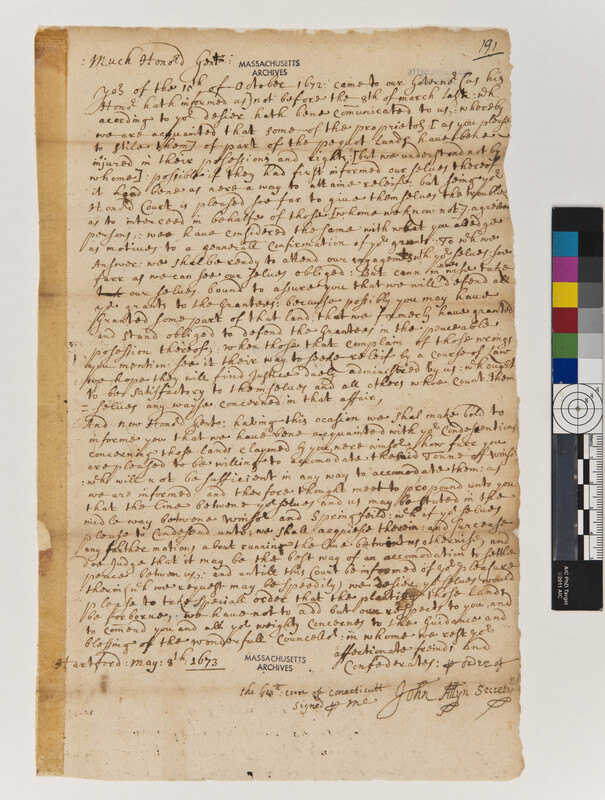 191
: Much Honord Gent:
MASSACHUSETTS
ARCHIVES
yors of the 15th of October 1672: came to our Governor [as his
Honor hath informed us] not before the 8th of march last: wch
acording to yor desier hath bene comunicated to us,: whereby
we are acquainted that some of the proprietors [as you please
to stile them] of part of the pequot lands have bene
injured in their possesions and rights [but we understand not by
whome]: possible if they had first informed our selves thereof
it had bene as nere a way to attaine releise, but seing yor
Honord Court is pleased soe far to give themselves the trouble
as to interceed in behalfe of those [whome we know not] agreived
persons,: wee have considered the same with what you alledge
as motives to a generall Confirmation of yor grants: To wch we
Answer: we shall be ready to attend our ingagements wth yor selves soe
farr as we can see our selves obliged: But cann in noe wise take
our selves bound to assure you that we will defend all
yor grants to the Grantees: because possibly you may have
Granted some part of that land, that we formerly have granted
and stand obliged to defend the Grantees in the peaceable
possession thereof,: when those that complain of those wrongs
you mention: see it their way to seeke releif by a Course of Law
we hope they will find Justice duely administred by us: wch ought
to be satisfactory to themselves and all others whoe Count them
= selves any wayes concerned in that affair,
And now Honord Gents: having this ocasion we shal make bold to
informe you that we have bene acquainted with yor Condesentions
concerning those lands claymed by you nere winsor how farr you
are pleased to be willing to accomodate the said Towne off winsor
wch will not be sufficient in any way to accomodate them: as
we are informed and therefore thought meet to propound unto you
that the line betwene yor selves and us may be stated in the
midle way betwene winsor and Springfeild: wch if yor selves
please to Condesend unto, we shall acquiese therein: and surcease
any further motions about running the line between us otherwise, and
doe Judge that it may be the best way of an accomodation to settle
peace between us,: and untill this Court be informed of yor pleasure
therin (wch we request may be speedily) we desire yor selves would
please to take speciall order that the planting those lands
be forborne: we have not to add but our respects to you and
to comend you and all yor weighty Concernes to the Guidance and
blessing of the wonderfull Councellor: in whome we rest yor
affectionate freinds and
Confederates: p order of
Hartford: may: 8th 1673
MASSACHUSETTS
ARCHIVES
the Genll: court of Conecticutt
Signed p me
John Allyn Secretry